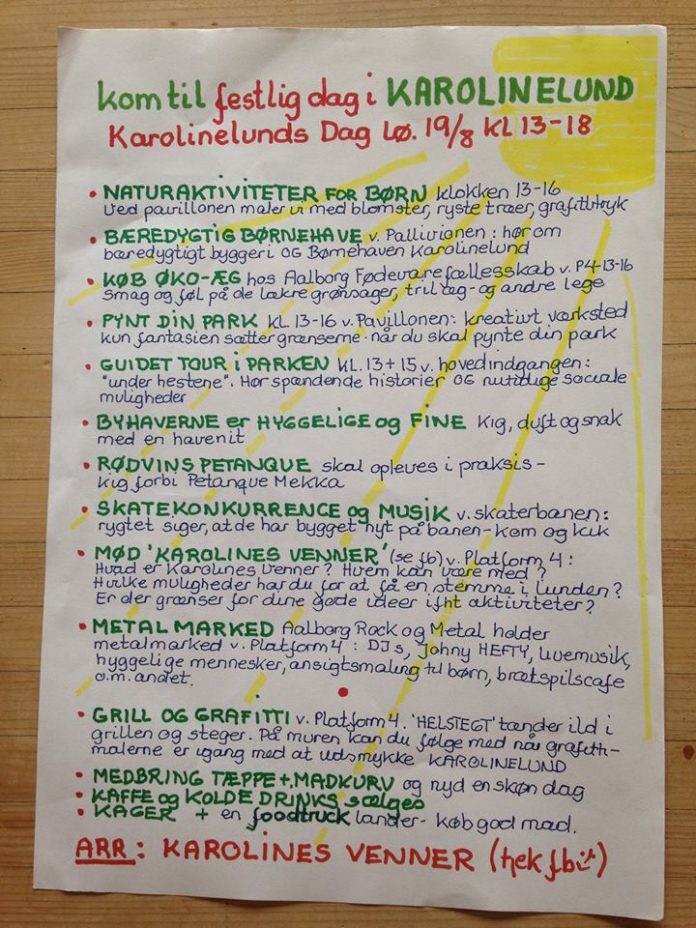 kom til festlig dag i KAROLINELUND
Karolinelunds Dag Lø. 19/8 kl 13-18
• NATURAKTIVITETER FOR BØRN klokken 13-16
Ved pavillonen maler vi med blomster, ryste træer,
• BÆREDYGTIG BØRNEHAVE v. Pallivionen: hør om
bæredygtigt byggeri OG Børnehaven Karolinelund
• KØB ØKO-ÆG hos Aalborg Fødevarefællesskab v. P4-13-16
smag og føl på de lækre grønsager, tril æg- og andre lege
• PYNT DIN PARK KL. 13-16 v. Pavillonen: kreativt værksted
kun fantasien sætter grænserne når du skal pynte din park
• GUIDET TOUR i PARKEN KL. 13+15 v. hovedindgangen:
"under hestene". Hør spændende historier OG nutidige sociale
muligheder
• BYHAVERNE er HYGGELIGE og FINE Kig, duft og snak
med en havenit
• RØDVINS PETANQUE skal opleves i praksis-
kig forbi Petanque Mekka
• SKATEKONKURRENCE og MUSIK v. skaterbanen:
rygtet siger, at de har bygget nyt på banen-kom og kik
• MØD 'KAROLINES VENNER' (se fb) v. Platform 4:
Hvad er Karolines Venner? Hvem kan være med?
Hvilke muligheder har du for at få en stemme i Lunden?
Er der grænser for dine gode ideer ifht aktiviteter?
• METAL MARKED Aalborg Rock og Metal holder
metalmarked v. Platform 4: DJs, Johny HEFTY, livemusik,
hyggelige mennesker, ansigtsmaling til børn, brætspilscafe
o.m. andet.
• GRILL OG GRAFITTI v. Platform 4. 'HELSTEGT' tænder ild i
grillen og steger. På muren kan du følge med når grafitti-
malerne er igang med at udsmykke KAROLINELUND
• MEDBRING TÆPPE + MADKURV og nyd en skøn dag
• KAFFE og KOLDE DRINKS sælges
• KAGER + en foodtruck lander- køb god mad.
ARR: KAROLINES VENNER (tjek fb